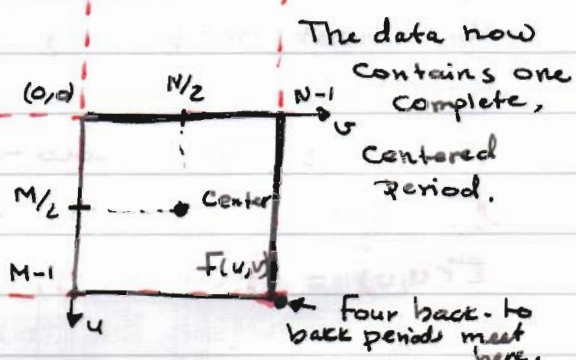 The data now
contains one
complete,
centered
Period.
(0,0)
N/2
N-1
v
M/2
Center
M-1
F(u,v)
u
Four back-to
back periods meet
here.